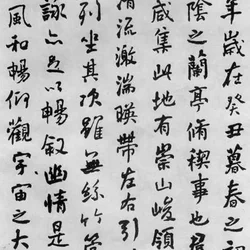 年歲在癸丑暮春
陰之蘭亭脩稧事也
咸集此地有崇山峻領
清流激湍暎帶左右引
列坐其次雖無絲竹
詠亦足以暢敘幽情是
風和暢仰觀宇宙之大